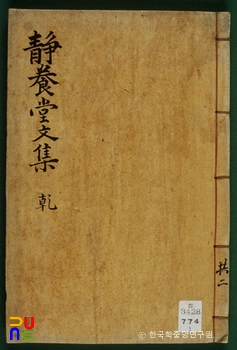 靜養堂文集
乾
共二
3428
774
1
© 한국학중앙연구원